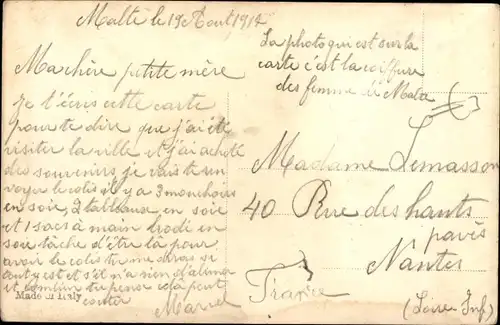 Malte le 19 Aout 1914
La photo qui est sur la
carte c'est la coiffure
des femme de Malte
Ma chère petite mère
je t'écris cette carte
pour te dire que j'ai été
visiter la ville et j'ai acheté
des souvenirs je vais te ren
voyer le colis il y a 3 mouchoirs
en soie, 2 tableaux en soie
et 1 sacs à main brodé en
soie tâche d'être là pour
avoir le colis tu me diras si
tout y est et s'il n'a rien d'abimé
et combien tu pense cela peut
couter
Marcel
Made in Italy
Madame Lemasson
40 Rue des hauts
pavés
Nantes
France
(Loire Inf)